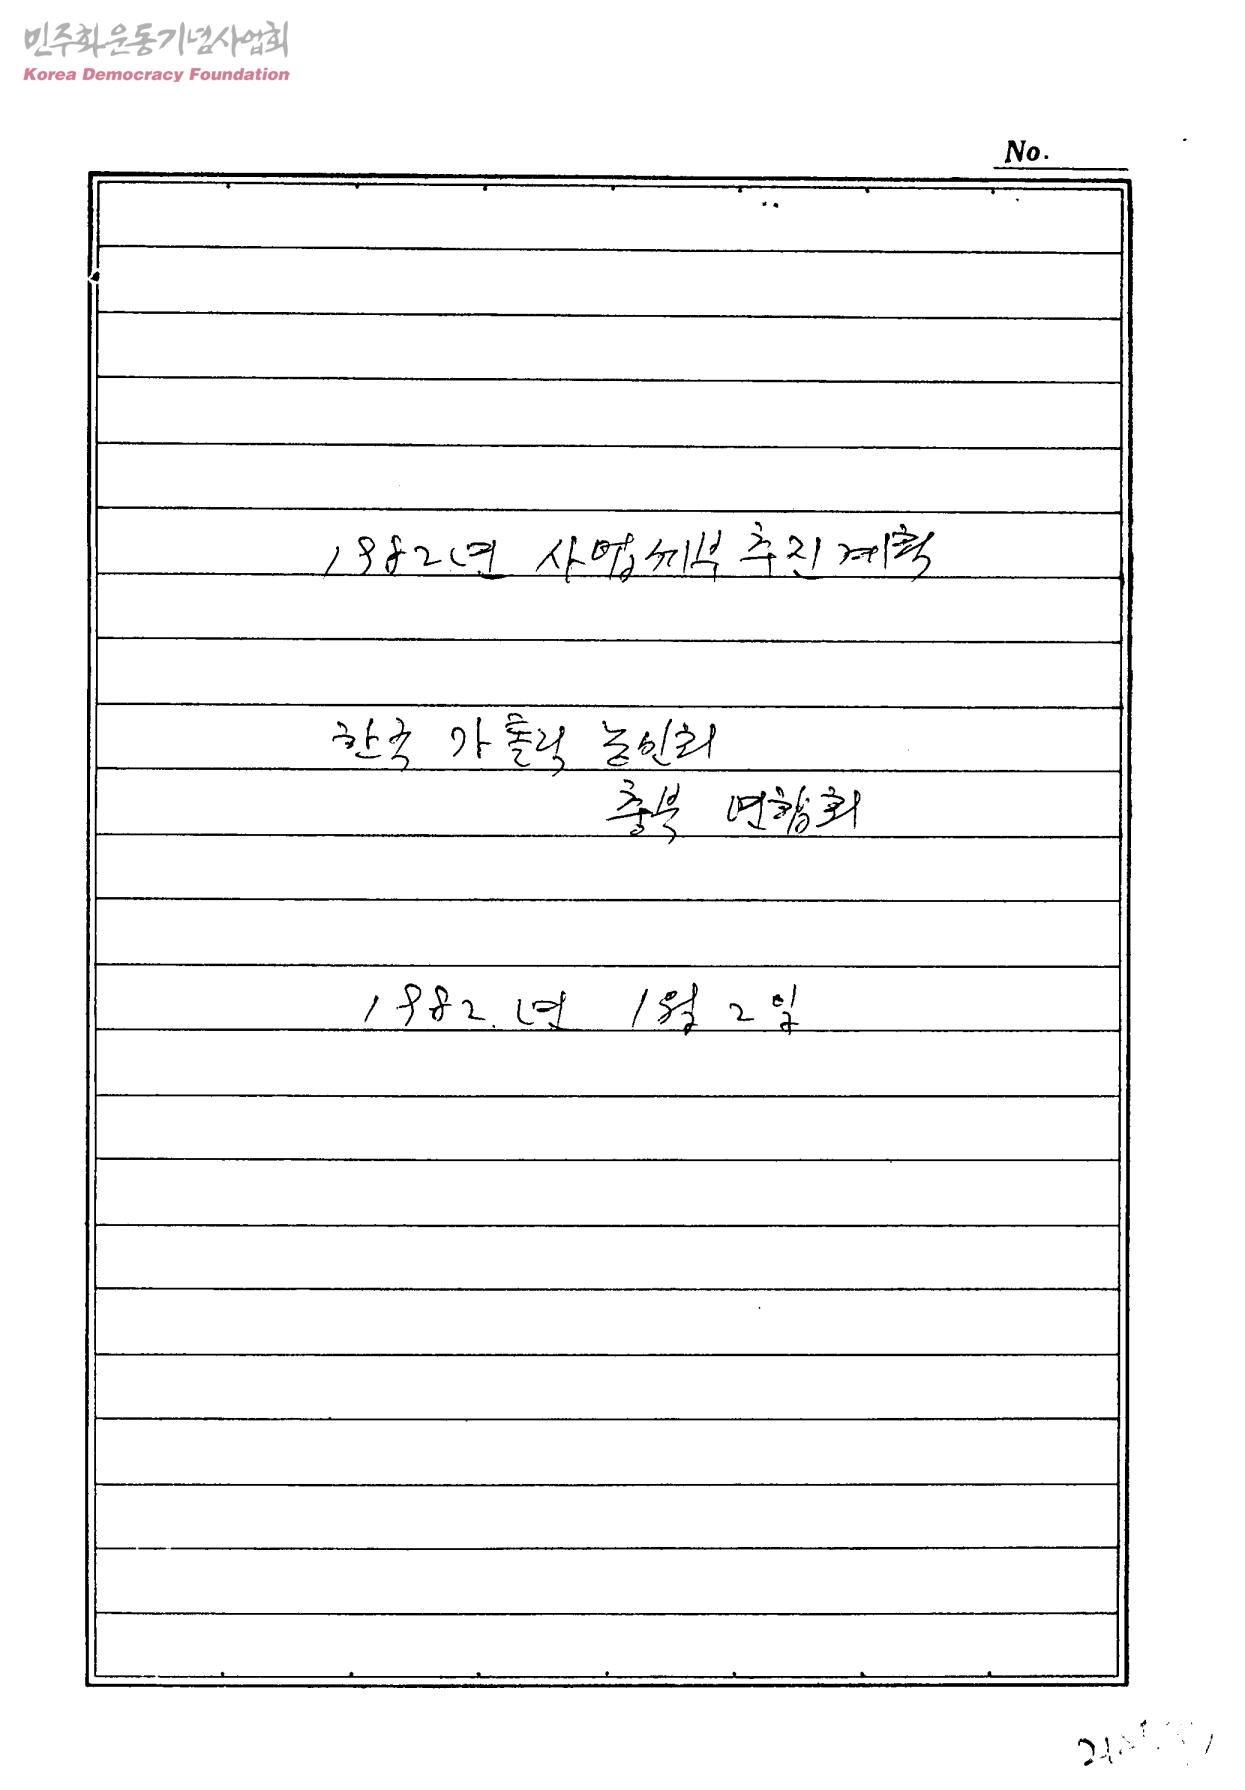 민주화운동기념사업회
Korea Democracy Foundation
No.
1982년 사업세부 추진계획
한국 가톨릭 농민회
충북 연합회
1982.년 1월 2일